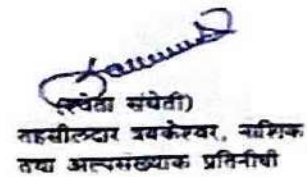 (श्वेता संचेती)
तहसीलदार त्र्यंबकेश्वर, नाशिक
तथा अल्पसंख्याक प्रतिनीधी